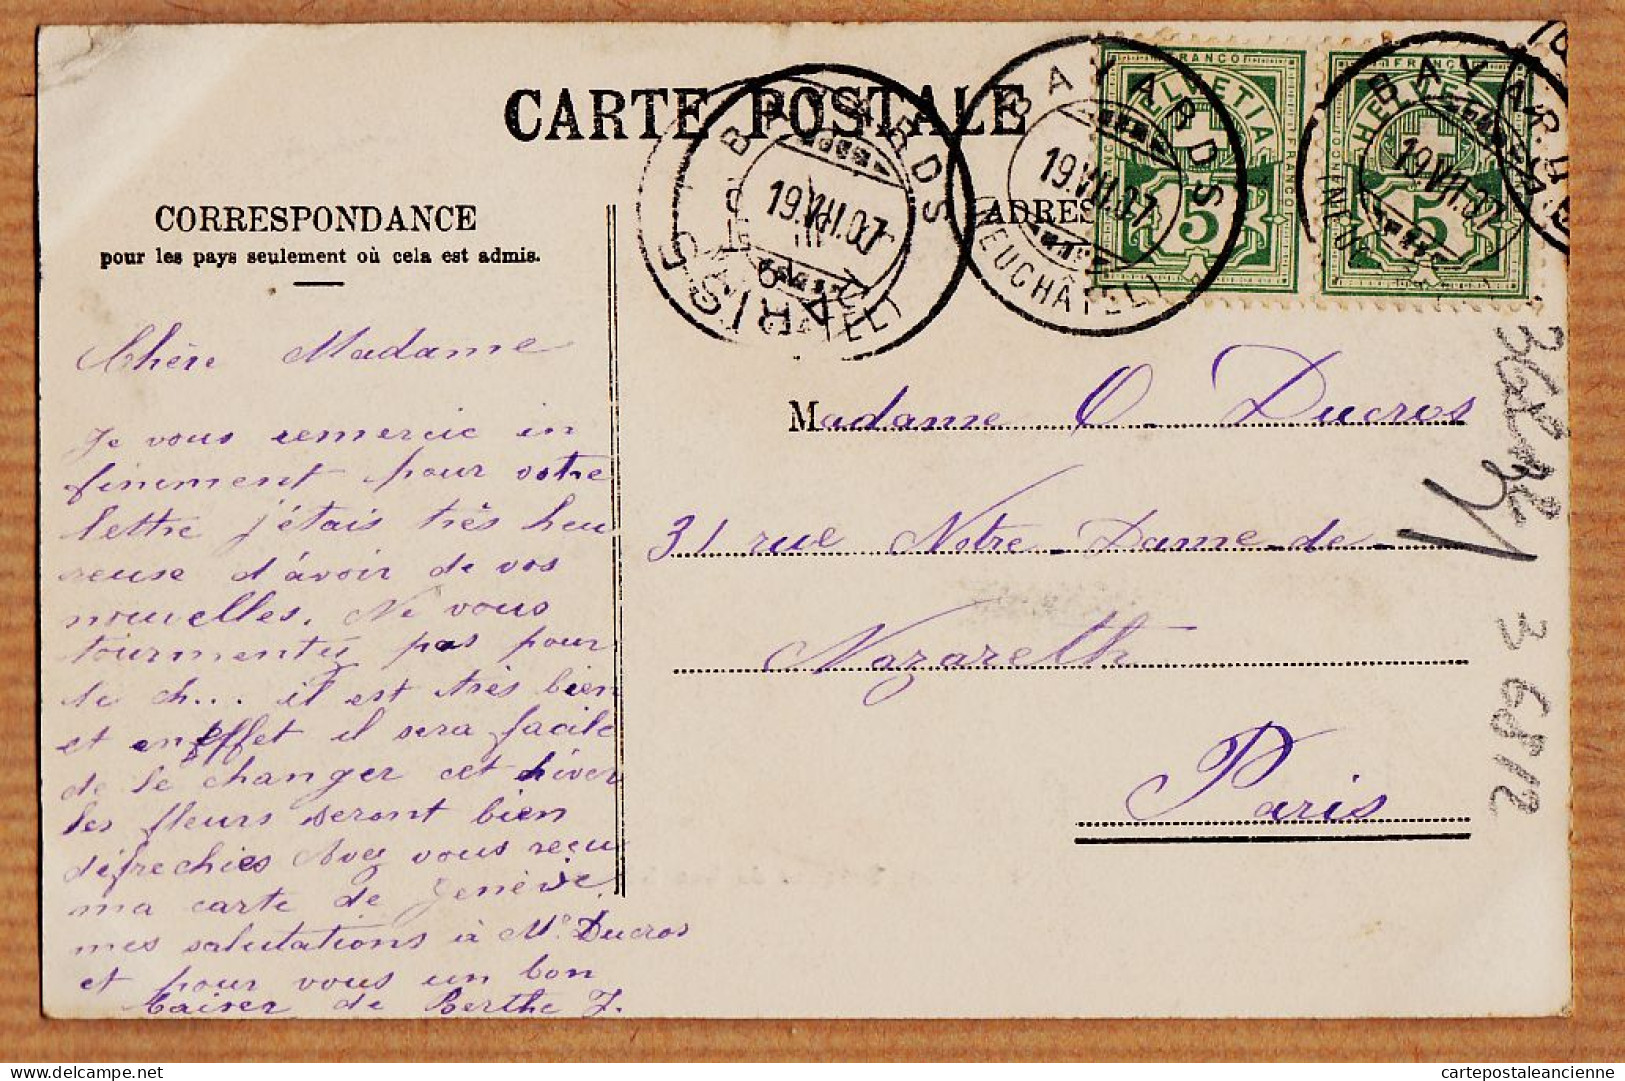 CARTE POSTALE
CORRESPONDANCE
pour les pays seulement où cela est admis.
ADRES
BAYARDS
19.VIII.07
(NEUCHÂTEL)
BAYARDS
19.VIII.07
(NEUCHÂTEL)
BAYARDS
19.VIII.07
PARIS
FRANCO
HELVETIA
5
FRANCO
HELVETIA
5
Chère Madame
Je vous remercie in
finiment pour votre
lettre j'étais très heu
reuse d'avoir de vos
nouvelles. Ne vous
tourmentez pas pour
le ch... il est très bien
et en effet il sera facile
de le changer cet hiver
les fleurs seront bien
défrechies Avez vous reçu
ma carte de Genève.
mes salutations à Mr Ducros
et pour vous un bon
baiser de Berthe J.
Madame O. Ducros
31 rue Notre-Dame-de-
Nazareth
Paris
3 6812
cartepostaleancienne.com
cartepostaleancienne